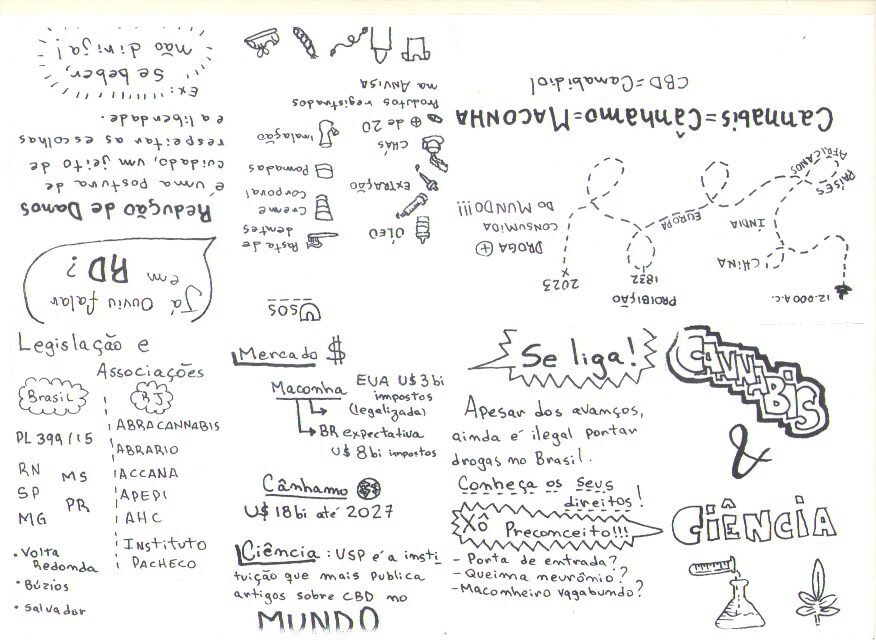 CANNABIS
&
CIÊNCIA
12.000 A.C.
CHINA
ÍNDIA
PAÍSES
AFRICANOS
EUROPA
PROIBIÇÃO
1832
2023
DROGA +
CONSUMIDA
DO MUNDO!!!
Cannabis=Cânhamo=MACONHA
CBD=Canabidiol
USOS
ÓLEO
EXTRAÇÃO
CHÁS
Pasta de
dentes
Creme
corporal
Pomadas
inalação
+ de 20
Produtos registrados
na ANVISA
Já Ouviu falar
em RD?
Redução de Danos
é uma postura de
cuidado, um jeito de
respeitar as escolhas
e a liberdade.
Ex:
Se beber,
não dirija!
Legislação e
Associações
Brasil
PL 399/15
RN
MS
SP
PR
MG
• Volta
Redonda
• Búzios
• Salvador
RJ
ABRACANNABIS
ABRARIO
ACCANA
APEPI
AHC
Instituto
PACHECO
Mercado $
Maconha
EUA U$ 3 bi
impostos
(legalizada)
BR expectativa
U$ 8 bi impostos
Cânhamo
U$ 18 bi até 2027
Ciência: USP é a insti
tuição que mais publica
artigos sobre CBD no
MUNDO
Se liga!
Apesar dos avanços,
ainda é ilegal portar
drogas no Brasil.
Conheça os seus
direitos!
Xô Preconceito!!!
- Porta de entrada?
- Queima neurônio?
- Maconheiro vagabundo?